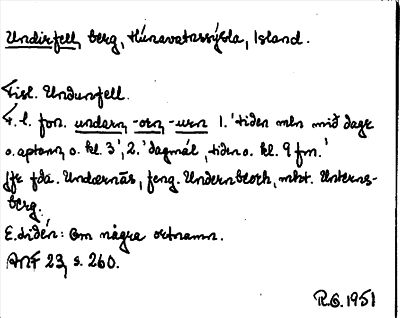 Undirfell, berg, Húnavatnssýsla, Island.
Fisl. Undunfell.
F.l. fsn. undarn, -orn, -urn 1. 'tiden mln mið dagr
o. aptann, o. kl. 3', 2. 'dagmál, tiden o. kl. 9 fm.'
Jfr fda. Undærnās, feng. Undernbeorh, mht. Unterns-
berg.
E. Lidén: Om några ortnamn.
ANF 23, s. 260.
R.G. 1951